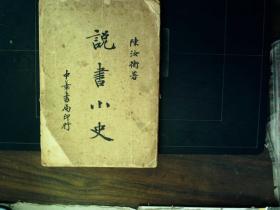 陳汝衡著
説書小史
中華書局印行